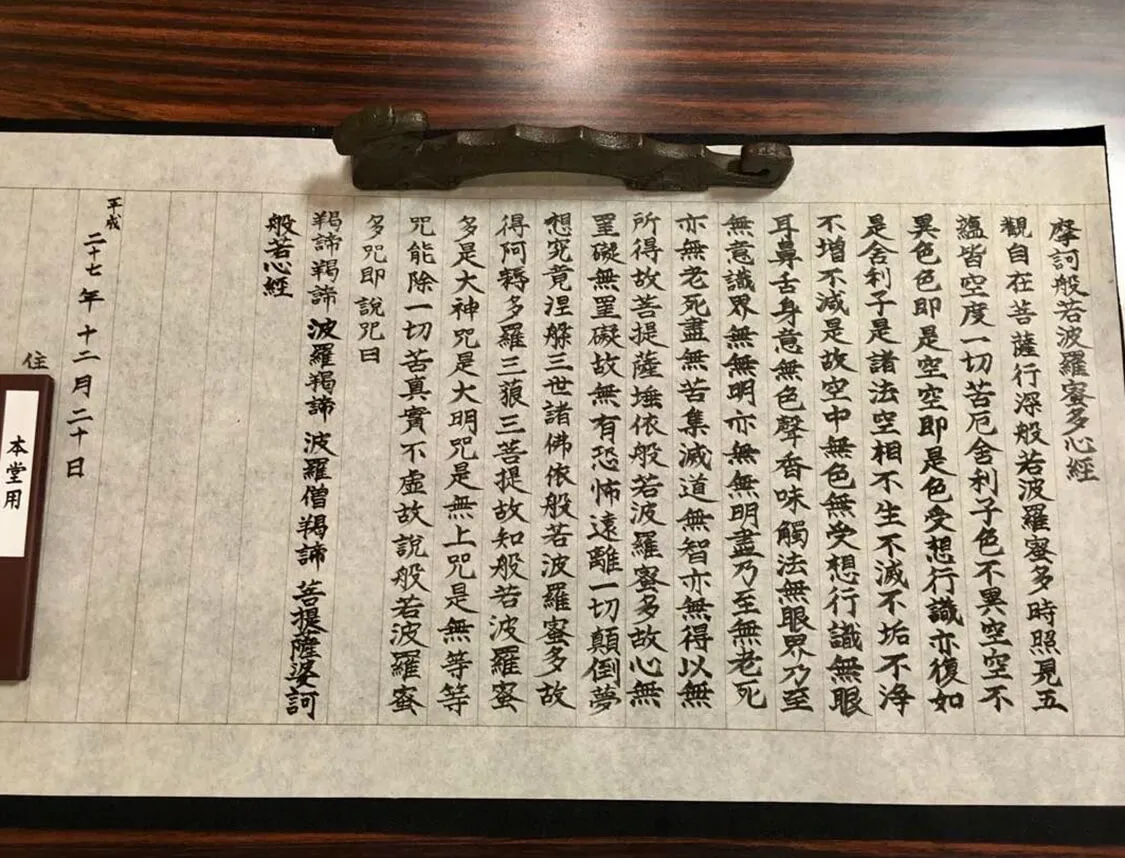 摩訶般若波羅蜜多心經
觀自在菩薩行深般若波羅蜜多時照見五
蘊皆空度一切苦厄舍利子色不異空空不
異色色即是空空即是色受想行識亦復如
是舍利子是諸法空相不生不滅不垢不淨
不增不減是故空中無色無受想行識無眼
耳鼻舌身意無色聲香味觸法無眼界乃至
無意識界無無明亦無無明盡乃至無老死
亦無老死盡無苦集滅道無智亦無得以無
所得故菩提薩埵依般若波羅蜜多故心無
罣礙無罣礙故無有恐怖遠離一切顛倒夢
想究竟涅槃三世諸佛依般若波羅蜜多故
得阿耨多羅三藐三菩提故知般若波羅蜜
多是大神咒是大明咒是無上咒是無等等
咒能除一切苦真實不虛故說般若波羅蜜
多咒即說咒曰
羯諦羯諦 波羅羯諦 波羅僧羯諦 菩提薩婆訶
般若心經
平成二十七年十二月二十日
住
本堂用